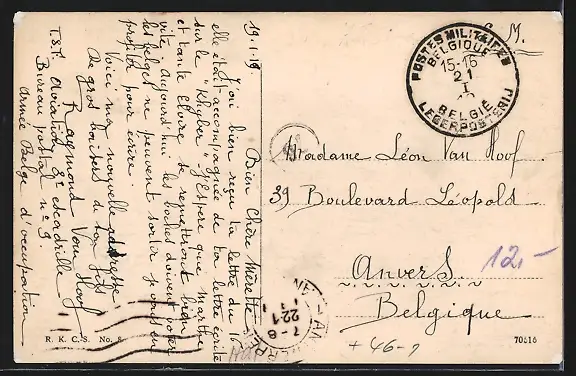 19-1-19
Bien Chère Mèrotte
J'ai bien reçu ta lettre du 16
elle était accompagnée de ta lettre écrite
sur le "Khyber". J'espère que Marthe
et tante Claire se remettront bien
vite. Aujourd'hui les boches doivent voter
les belges ne peuvent sortir, j'en ai
profité pour écrire.
Voici ma nouvelle adresse
De gros baisers de ton fils
Raymond Van Hoof
T.S.F. Aviation 8e escadrille
Bureau postal n° 9.
Armée Belge d'occupation
S. M.
POSTES MILITAIRES
BELGIQUE
15-16
21
I
19
BELGIË
LEGERPOSTERIJ
Madame Léon Van Hoof
39 Boulevard Léopold
Anvers
Belgique
12,-
7-8
22 I
+ 46-9
R. K. C. S. No. 8
70616